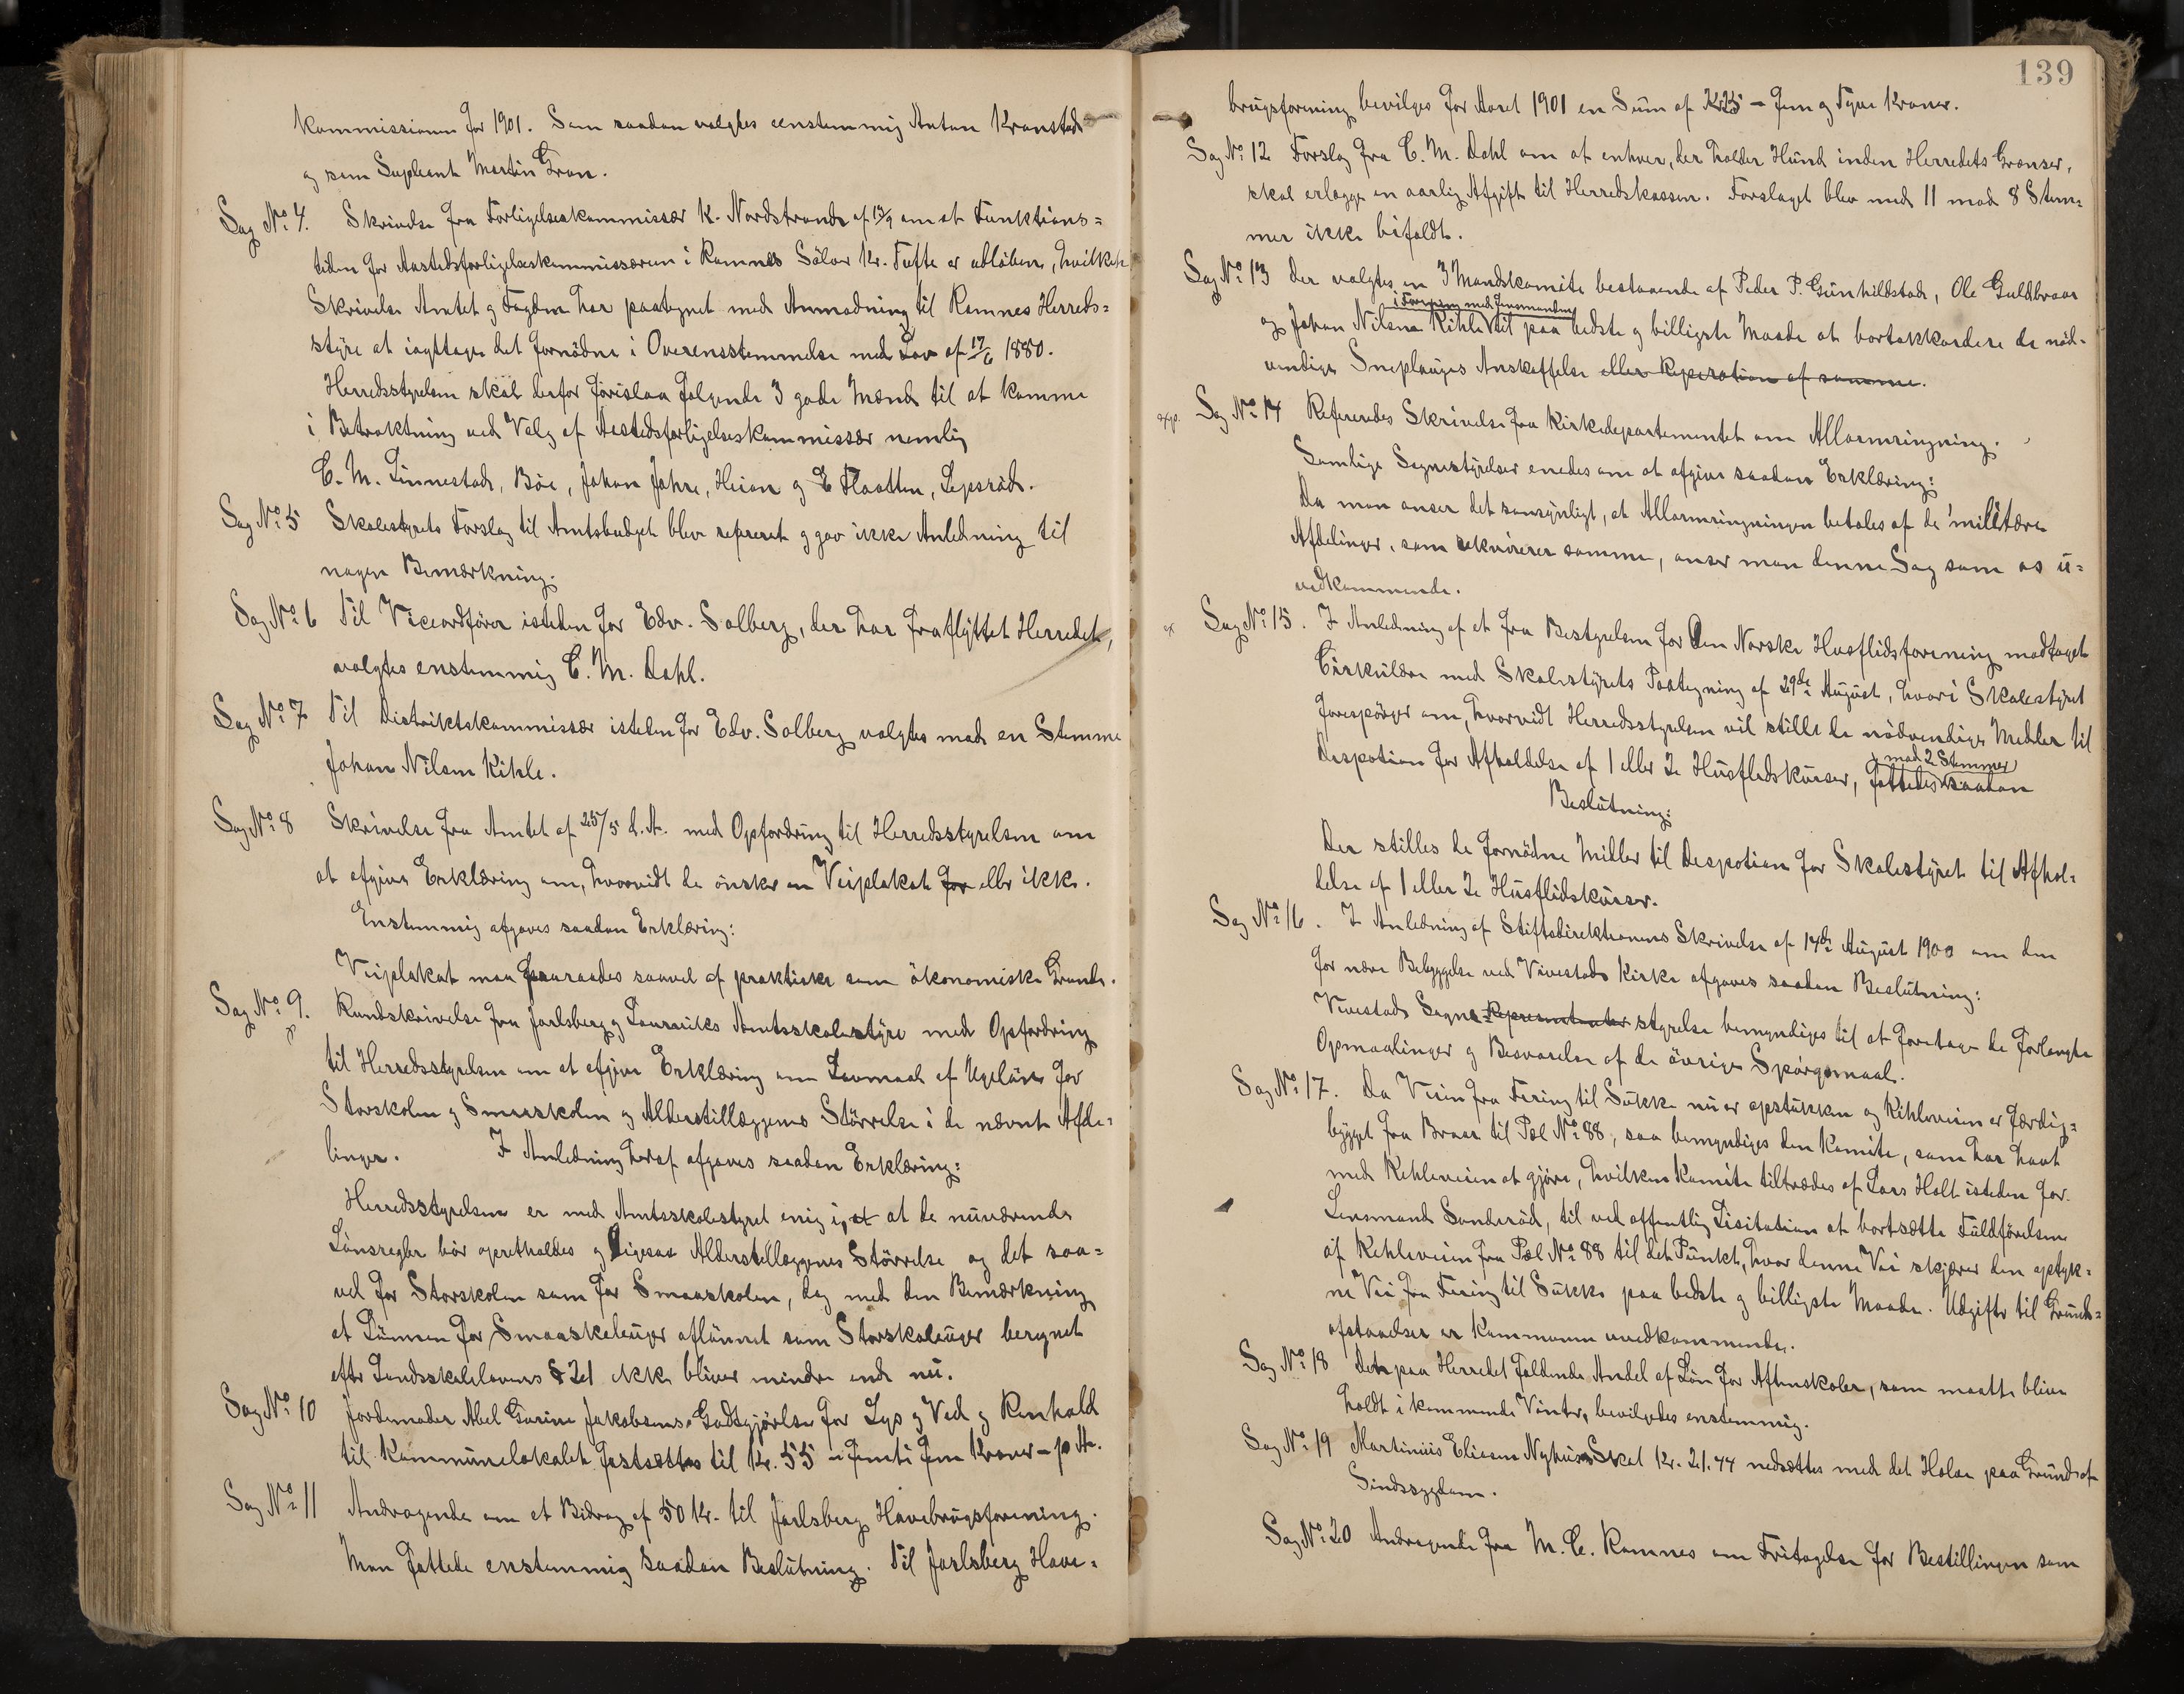 Kommissionen for 1901. Som saadan valgtes eenstemmig Anton Kronstad
og som Supleant Martin Gran.
Sag No 4. Skrivelse fra Forligelseskommissær K. Nordstrand af 13/9 om at Funktions=
tiden for Aastedsforligelseskommissæren i Ramnes Sölver Kr. Tufte er udløben, hvilken
Skrivelse Amtet og Fogden har paategnet med Anmodning til Ramnes Herreds=
styre at iagttage det fornödne i Overensstemmelse med Lov af 17/6 1880.
Herredsstyrelsen skal derfor foreslaa følgende 3 gode Mænd til at komme
i Betraktning ved Valg af Aastedsforligelseskommissær nemlig
C. M. Linnestad, Böe, Johan Jahre, Heian og E Flaatten, Lepsröd.
Sag No 5 Skolestyrets Forslag til Amtsbudget blev refereret og gav ikke Anledning til
nogen Bemærkning.
Sag No 6 Til Viceordfører isteden for Edv. Solberg, der har fraflyttet Herredet,
valgtes enstemmig C. M. Dahl.
Sag No 7 Til Distriktskommissær isteden for Edv. Solberg valgtes mod en Stemme
Johan Nilsen Kihle.
Sag No 8 Skrivelse fra Amtet af 25/5 d. A. med Opfordring til Herredsstyrelsen om
at afgive Erklæring om, hvorvidt de önsker en Veiplakat for eller ikke.
Enstemmig afgaves saadan Erklæring:
Veiplakat maa fraaraades saavel af praktiske som ökonomiske Grunde.
Sag No 9. Rundskrivelse fra Jarlsberg og Laurviks Amtsskolestyre med Opfordring
til Herredsstyrelsen om at afgive Erklæring om Lavmaal af Ugelön for
Storskolen og Smaaskolen og Alderstillæggenes Störrelse i de nævnte Afde=
linger. I Anledning heraf afgaves saadan Erklæring:
Herredsstyrelsen er med Amtsskolestyret enig i, at at de nuværende
Lönsregler bör opretholdes og ligesaa Alderstillæggenes Störrelse og det saa=
vel for Storskolen som for Smaaskolen, dog med den Bemærkning
at Lönnen for Smaaskeleuger aflönnet som Storskoleuger beregnet
efter Landsskolelovens § 21 ikke bliver mindre end nu.
Sag No 10 Jordemoder Abel Gurine Jakobsens Godtgjörelse for Lys og Ved og Renhold
til Kommunelokalet fastsættes til Kr. 55 - Femti fem Kroner - p A.
Sag No 11 Andragende om et Bidrag af 50 Kr. til Jarlsberg Havebrugsforening.
Man fattede enstemmig saadan Beslutning. Til Jarlsberg Have=
139
brugsforening bevilges for Aaret 1901 en Sum af Kr 25 - fem og Tyve Kroner.
Sag No 12 Forslag fra C. M. Dahl om at enhver, der holder Hund inden Herredets Grænser,
skal erlægge en aarlig Afgift til Herredskassen. Forslaget blev med 11 mod 8 Stem=
mer ikke bifaldt.
Sag No 13 Der valgtes en 3 Mandskomite bestaaende af Peder P. Gunhildstad, Ole Guldbraar
i Forening med Lensmanden
og Johan Nilsen Kihle til paa bedste og billigste Maade at bortakkordere de nöd-
vendige Sneplouges Anskaffelse eller Reperation af samme.
exp. Sag No 14 Refereredes Skrivelse fra Kirkedepartementet om Allarmringning.
Samlige Sognestyrelser enedes om at afgive saadan Erklæring:
Da man anser det sansynligt, at Allarmringningen betales af de militære
Afdelinger, som rekvirerer samme, anser man denne Sag som os u=
vedkommende.
ex Sag No 15. I Anledning af et fra Bestyrelsen for Den Norske Husflidsforening modtaget
Cirkulære med Skolestyrets Paategning af 29de August, hvori Skolestyret
forespörger om, hvorvidt Herredsstyrelsen vil stille de nödvendige Medler til
mod 2 Stemmer
Despotion for Afholdelse af 1 eller 2 Husflidskurser, fattedes saadan
Beslutning:
Der stilles de fornödne Midler til Despotion for Skolestyret til Afhol=
delse af 1 eller 2 Husflidskurser.
Sag No 16. I Anledning af Stiftsdirektionens Skrivelse af 14de August 1900 om den
for nære Bebyggelse ved Vivestad Kirke afgaves saadan Beslutning:
Vivestad Sogne-Representanter styrelse bemyndiges til at foretage de forlangte
Opmaalinger og Besvarelse af de övrige Spörgsmaal.
Sag No 17. Da Veien fra Fering til Sukke nu er opstukken og Kihleveien er færdig=
bygget fra Braar til Pæl No 88, saa bemyndiges den Komite, som har havt
med Kehleveien at gjöre, hvilken Komite tiltrædes af Lars Holt isteden for
Lensmand Sanderöd, til ved offentlig Lisitation at bortsætte Fuldförelsen
af Kehleveien fra Pæl No 88 til det Punkt, hvor denne Vei skjærer den opstuk=
ne Vei fra Fering til Sukke paa bedste og billigste Maade. Udgifter til Grund=
afstaaelser er Kommunen uvedkommende.
Sag No 18 Det paa Herredet faldende Andel af Lön for Aftenskoler, som maatte blive
holdt i kommende Vinter, bevilgedes enstemmig.
Sag No 19 Martinius Eliasen Nyhus Skat Kr. 21.44 nedsættes med det Halve paa Grund af
Sindssygdom.
Sag No 20 Andragende fra M. C. Ramnes om Fritagelse for Bestillingen som